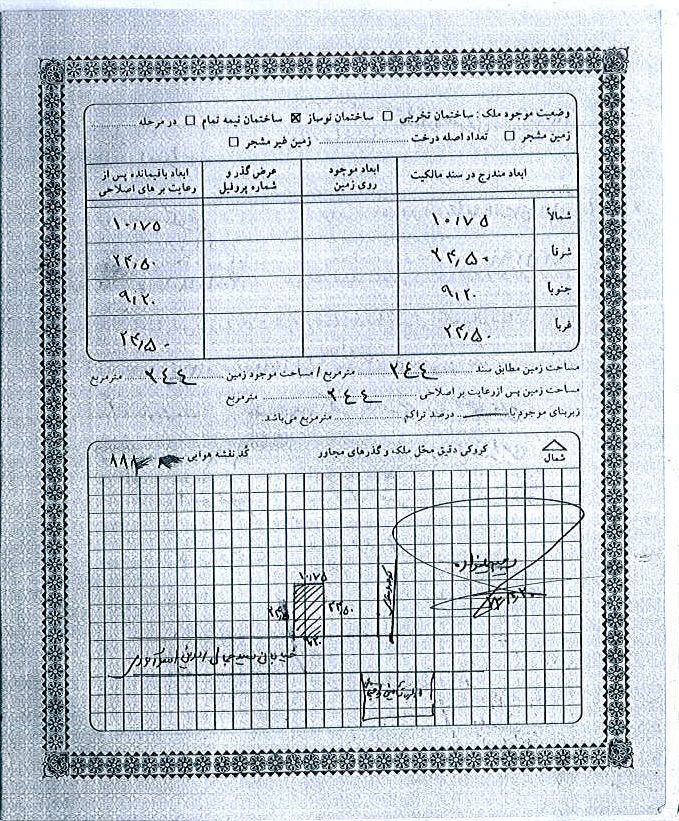 وضعیت موجود ملک : ساختمان تخریبی □ ساختمان نوساز ☒ ساختمان نیمه تمام □ در مرحله
زمین مشجر □ تعداد اصله درخت ............ زمین غیر مشجر □
ابعاد مندرج در سند مالکیت
ابعاد موجود روی زمین
عرض گذر و شماره پروفیل
ابعاد باقیمانده پس از رعایت بر های اصلاحی
شمالاً ۱۰٫۷۵ ۱۰٫۷۵
شرقا ۲۴٫۵۰ ۲۴٫۵۰
جنوبا ۹٫۲۰ ۹٫۲۰
غربا ۲۴٫۵۰ ۲۴٫۵۰
مساحت زمین مطابق سند ۲۴۴ مترمربع / مساحت موجود زمین ۲۴۴ مترمربع
مساحت زمین پس از رعایت بر اصلاحی ۲۴۴ مترمربع
زیربنای موجود با ...... درصد تراکم ............ مترمربع می‌باشد.
شمال
کروکی دقیق محل ملک و گذرهای مجاور
کد نقشه هوایی
۱۰٫۷۵
۹٫۲۰
خیابان سید جمال الدین اسدآبادی